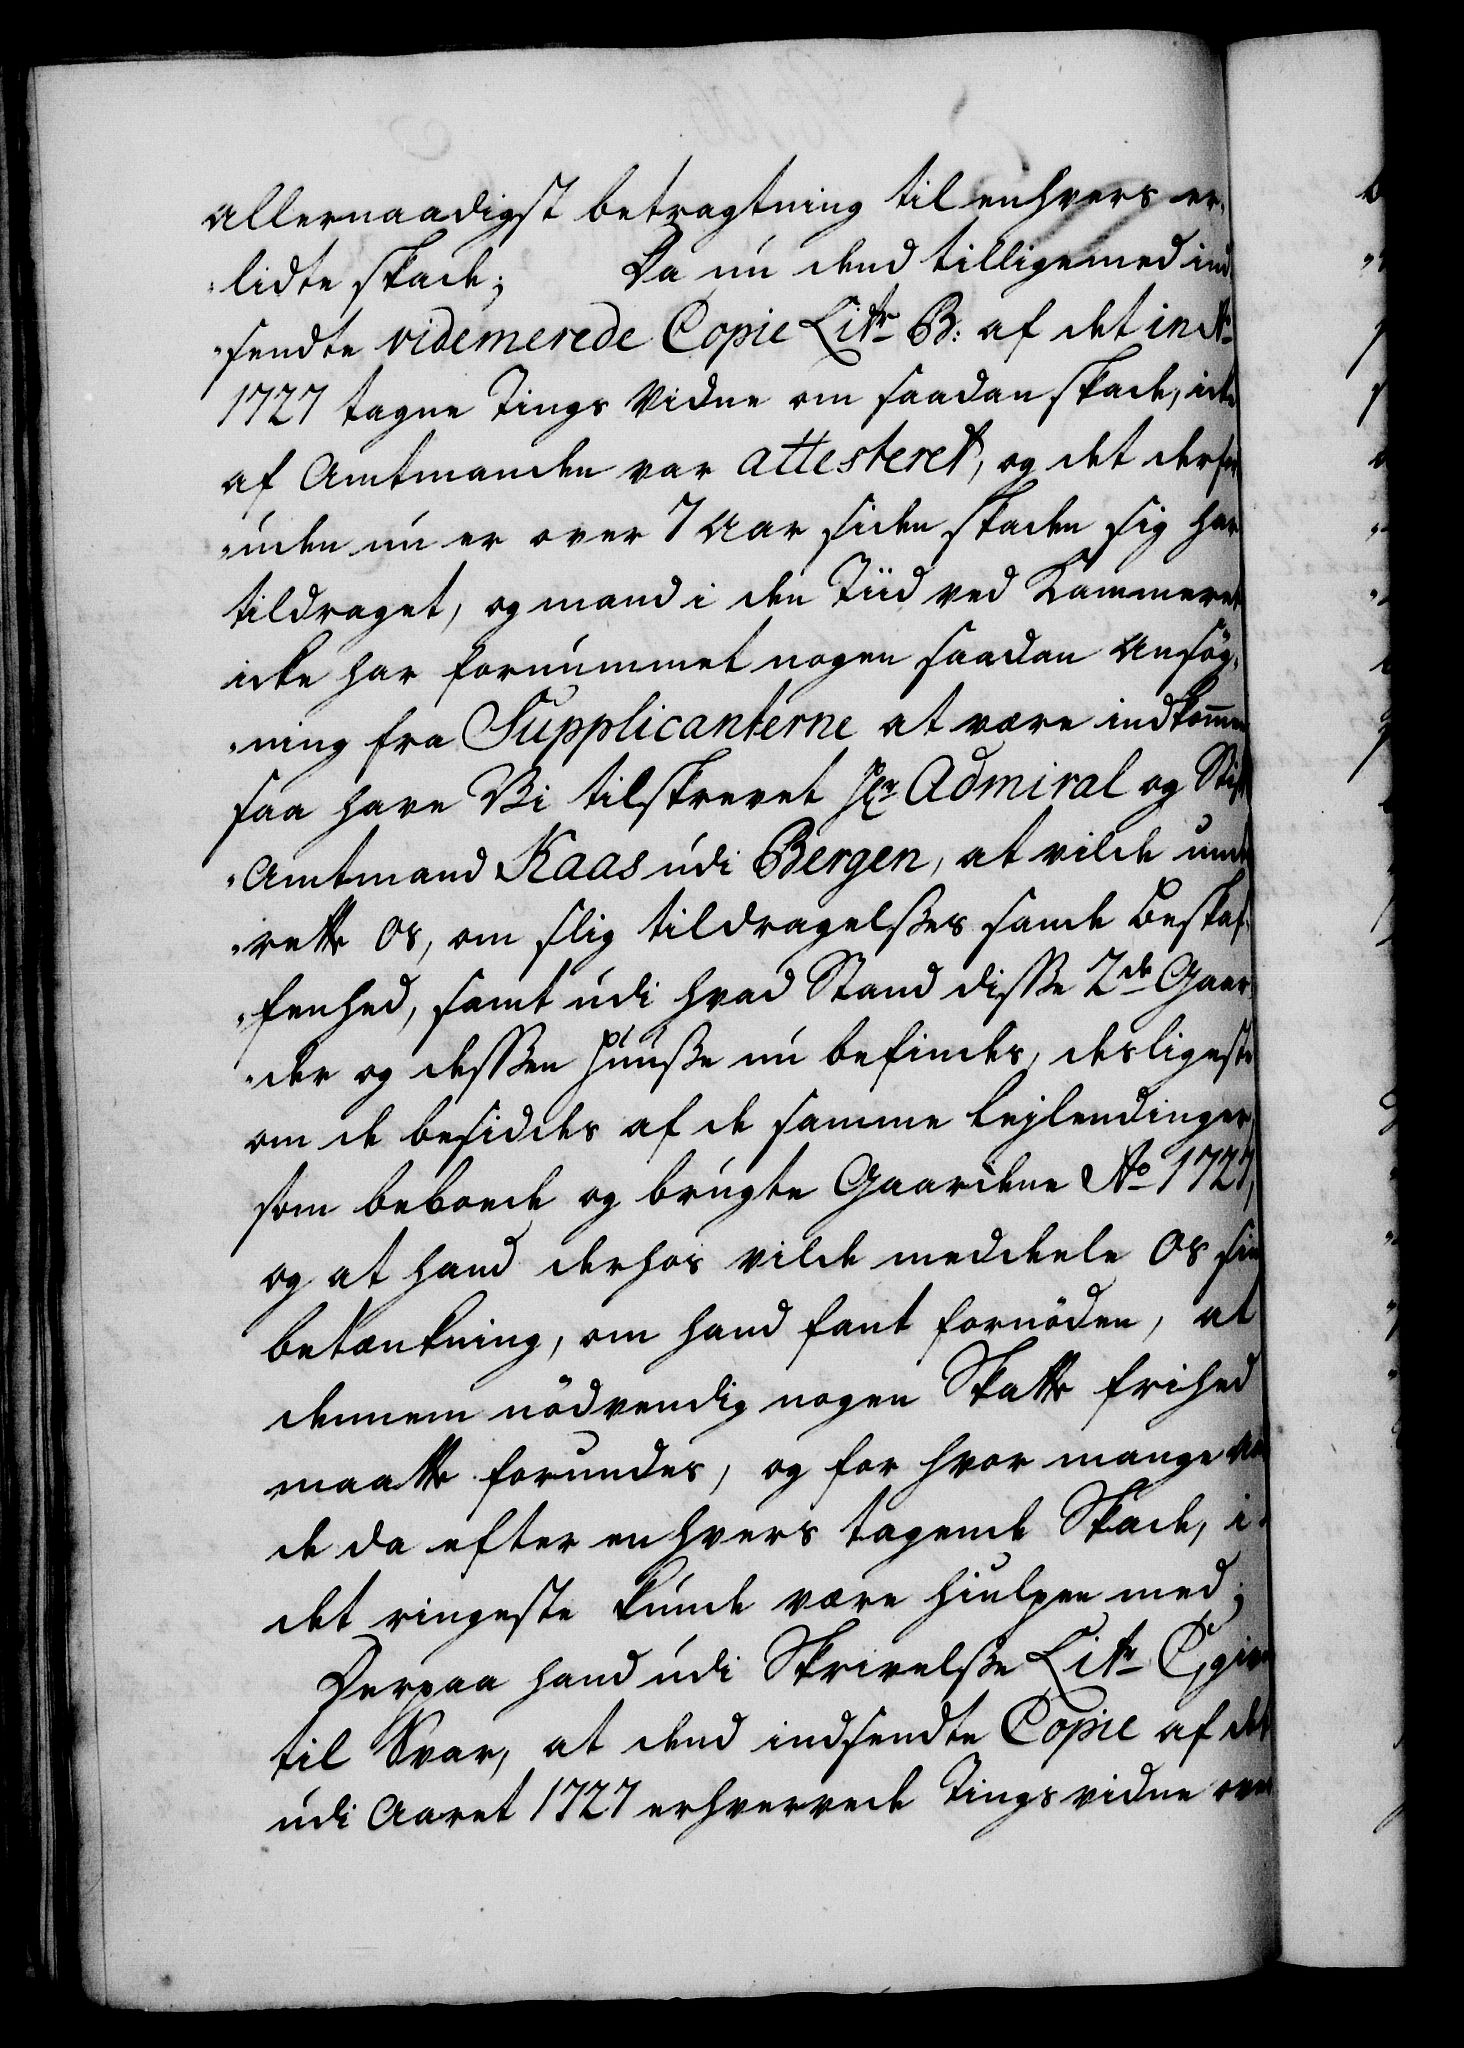 allernaadigst betragtning til enhvers er-
„lidte skade; Da nú dend tilligemed ind
„sendte videmerede Copie Litr B: af det in Ao
1727 tagne Tings Vidne om saadan skade, icke
af Amtmanden var attesteret, og det derfor
„úden nú er over 7 Aar siden skaden sig har
tildraget, og mand i den Tiid ved Kammeret
icke har fornummet nogen saadan Ansøg-
„ning fra Supplicanterne at være indkommen
saa have Vi tilskrevet Hr Admiral og Stift
„Amtmand Kaas údi Bergen, at vilde under
„rette os, om slig tildragelsses sande Beskaf-
„fenhed, samt údi hvad Stand disse 2de Gaar-
„der og dessen Húúse nú befindes, desligeste
om de besiddes af de samme Lejlendinger
som beboede og brúgte Gaardene Ao 1727,
og at hand derhos vilde meddeele os sin
betænkning, om hand fant fornöden, at
dennem nödvendig nogen Skatte frihed
maatte forundes, og for hvor mange Aar
de da efter enhvers tagende Skade, i-
det ringeste kúnde være hiulpen med;
Derpaa hand údi Skrivelsse Litr C, giver
til Svar, at dend indsendte Copie af det
údi Aaret 1727 erhvervede Tingsvidne over